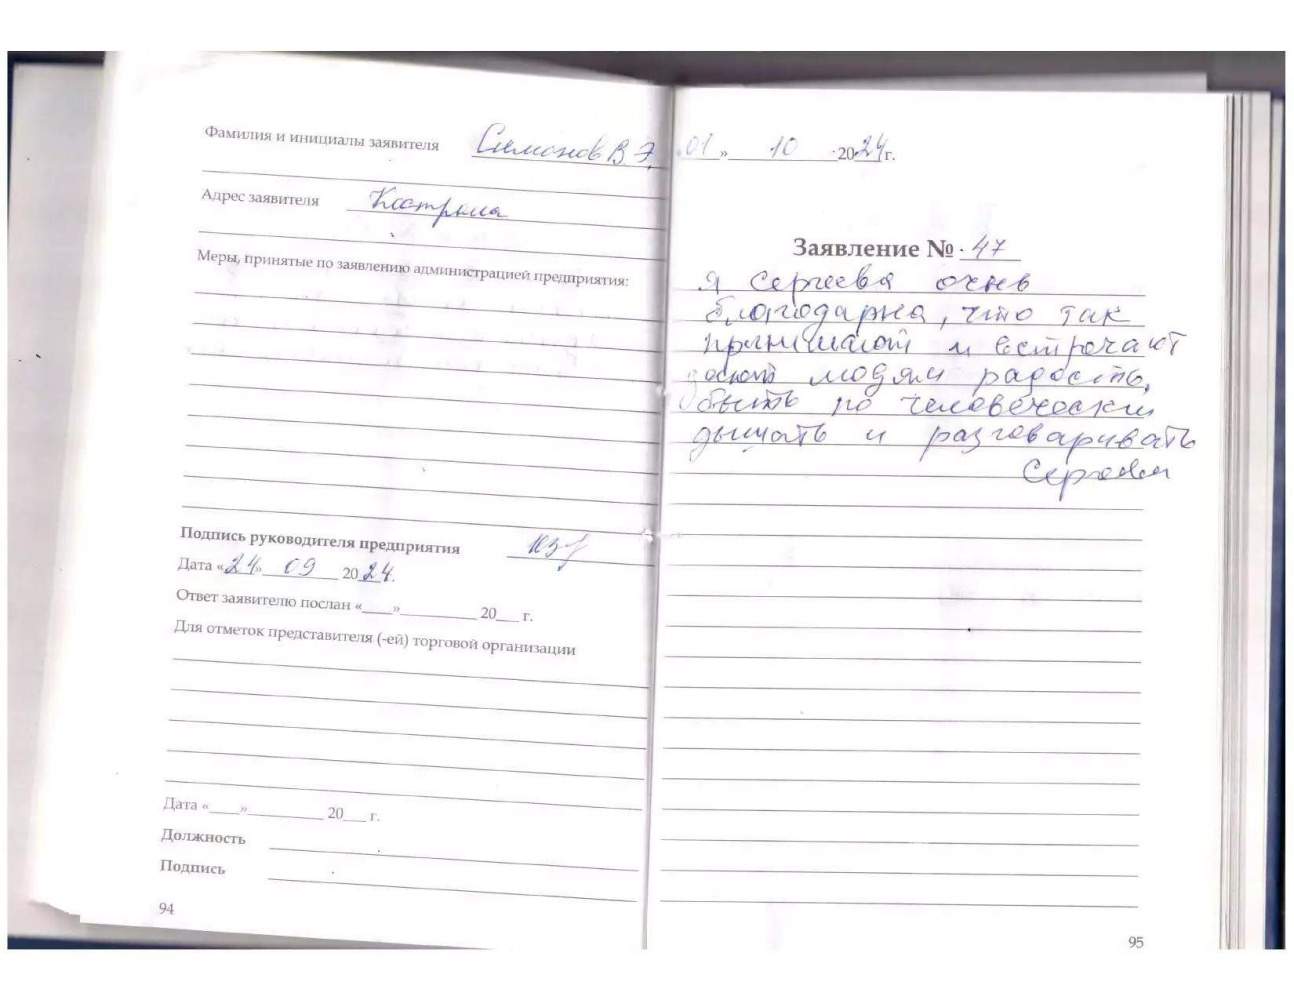 Фамилия и инициалы заявителя Симонов В Э
Адрес заявителя Кострома
Меры, принятые по заявлению администрацией предприятия:
Подпись руководителя предприятия
Дата «24» 09 2024.
Ответ заявителю послан «____»__________ 20___ г.
Для отметок представителя (-ей) торговой организации
Дата «____»__________ 20___ г.
Должность
Подпись
94
01 » 10 2024 г.
Заявление № 47
Я Сергеева очень
благодарна, что так
принимают и встречают
людям радость,
быть по человечески
дышать и разговаривать
95